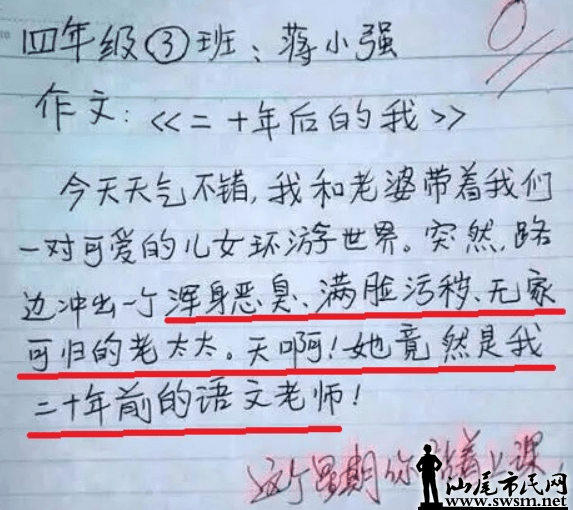 四年级③班：蒋小强
0
作文：《二十年后的我》
今天天气不错，我和老婆带着我们
一对可爱的儿女环游世界。突然，路
边冲出一个浑身恶臭、满脸污秽、无家
可归的老太太。天啊！她竟然是我
二十年前的语文老师！
这个星期你 着上课
汕尾市民网
www.swsm.net